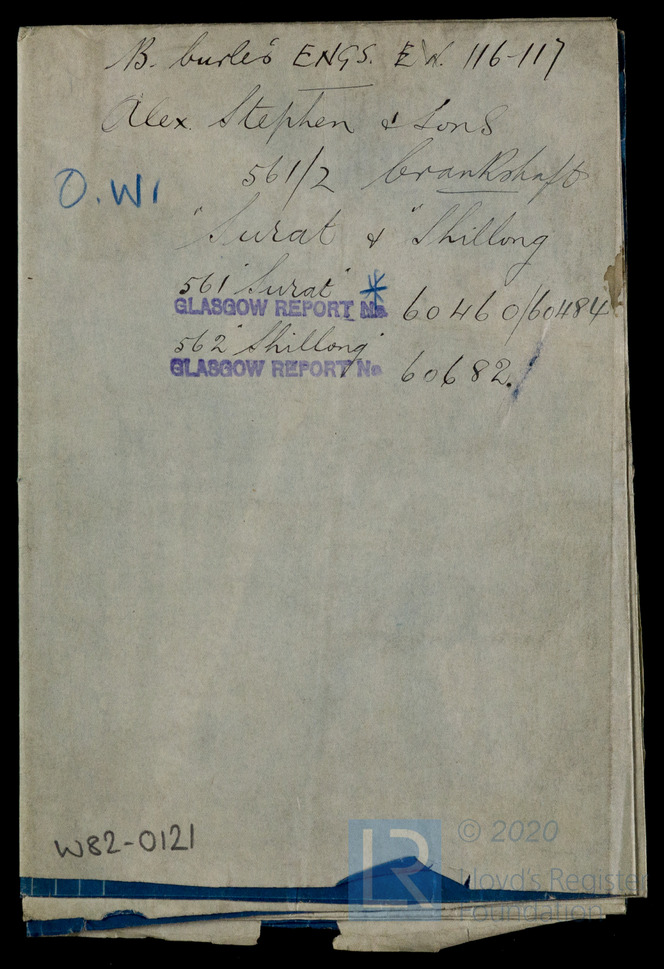 B. Curtis ENGS. E.N. 116-117
Alex. Stephen & Sons
561/2 Crankshaft
O.W1
"Surat & "Shillong
561 "Surat" *
GLASGOW REPORT No. 60460/60484
562 "Shillong"
GLASGOW REPORT No 60682.
W82-0121
LR © 2020
Lloyd's Register
Foundation